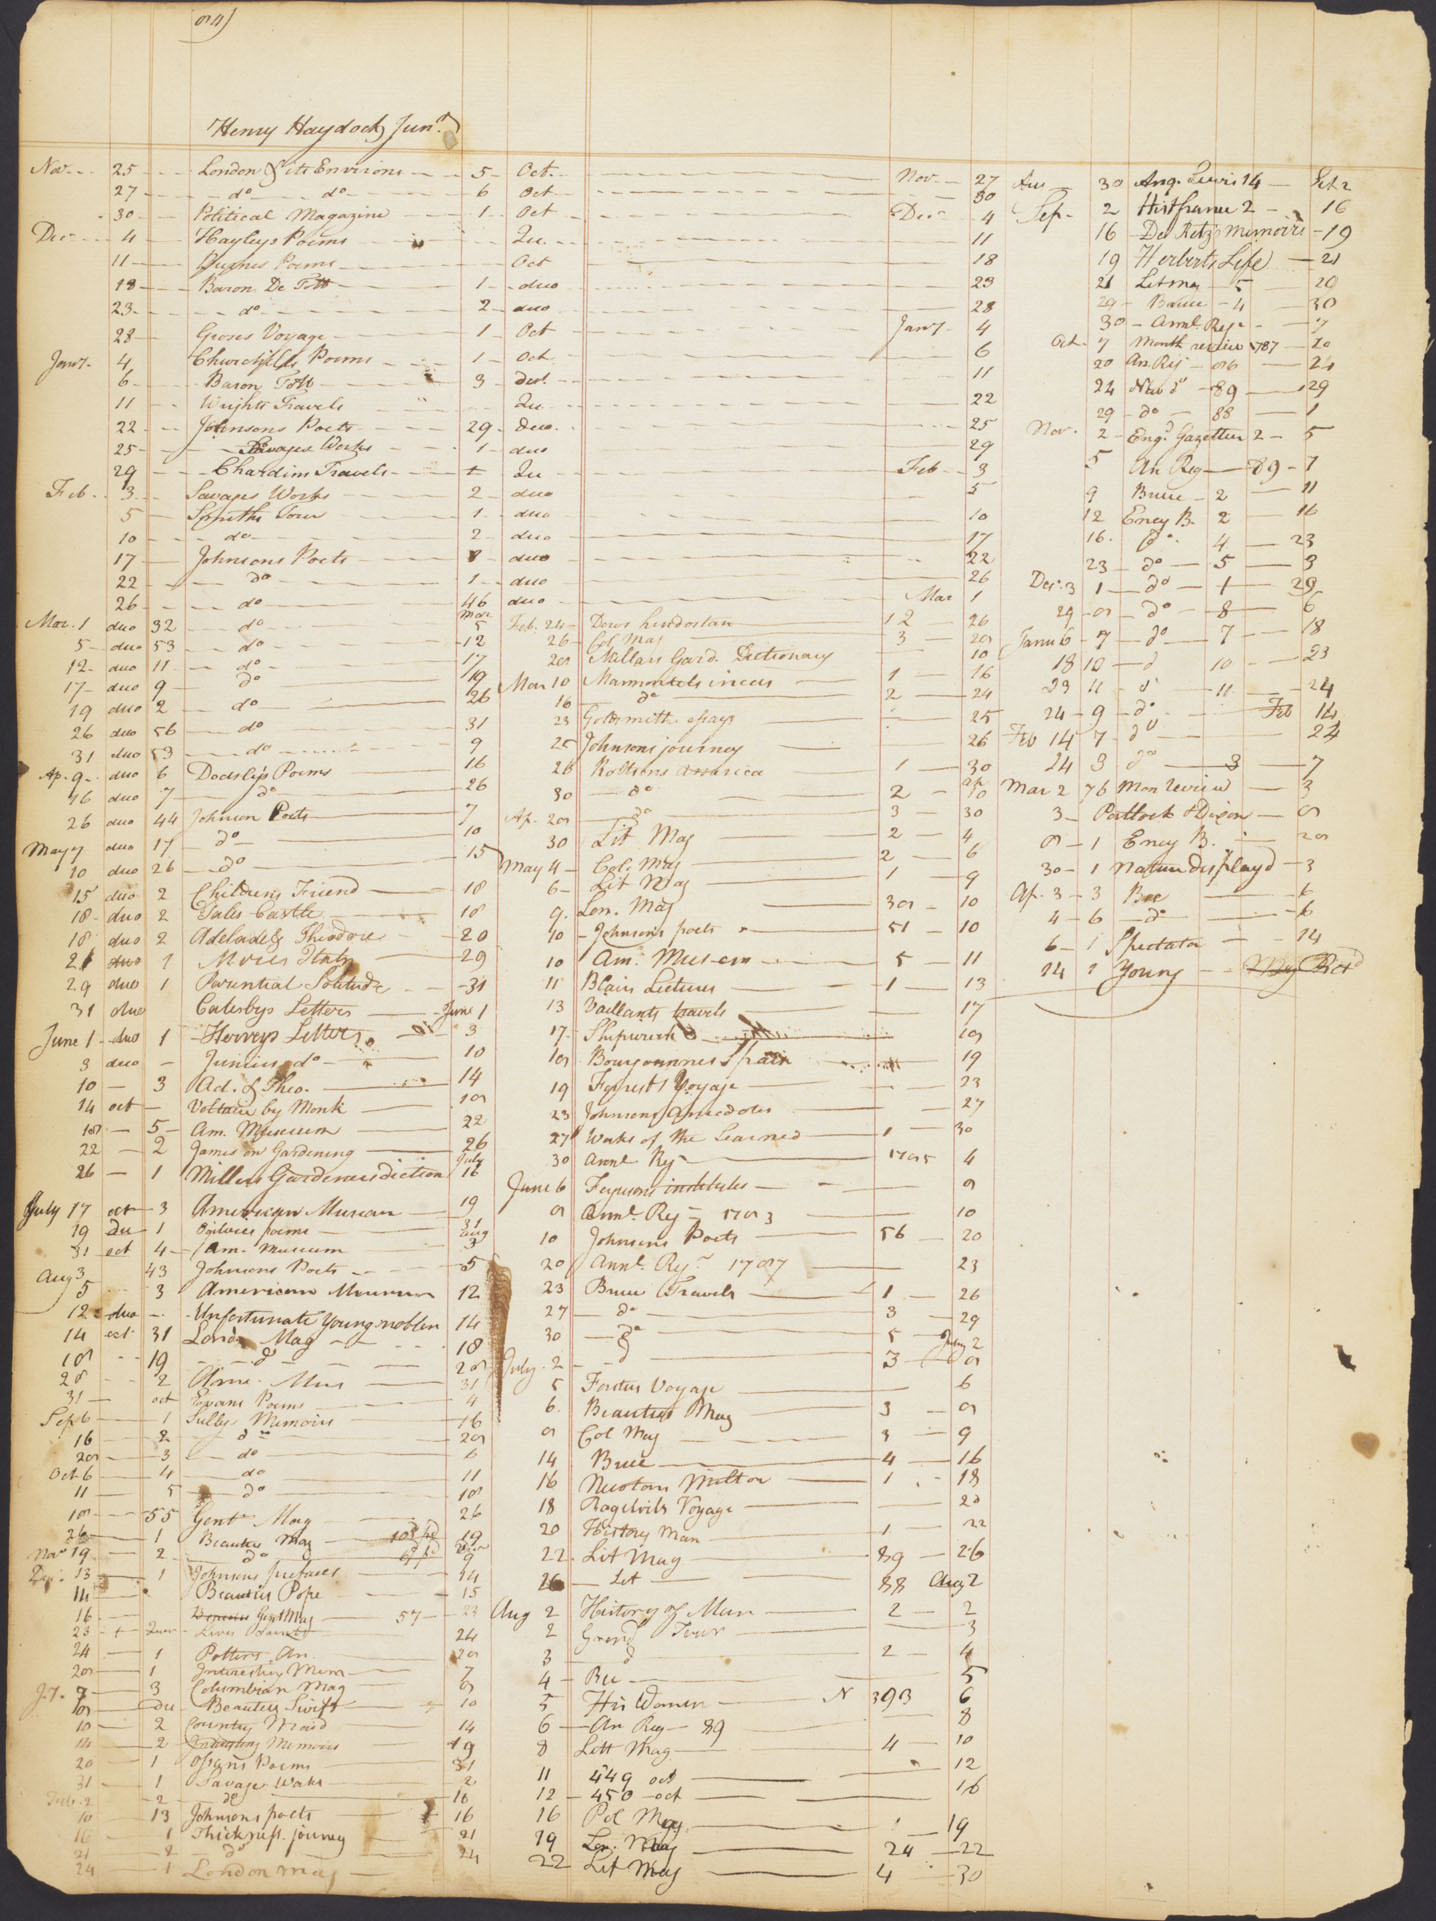 Henry Haydock Junr.
Nov. 25 London & its Environs 5 Oct. Nov 27
27 do do 6 Oct 30
30 Political Magazine 1 Oct Decr 4
Decr 4 Hayleys Poems Qu. 11
11 Poems Oct 18
18 Baron De Tott 1 duo 23
23 do 2 duo 28
28 Groses Voyage 1 Oct Jany 4
Jany 4 Churchills Poems 1 Oct 6
6 Baron Tott 3 duo. 11
11 Wrights Travels Qu 22
22 Johnsons Poets 29 duo. 25
25 Savages Works 1 duo 29
29 Chardins Travels Qu Feb 3
Feb 3 Savages Works 2 duo 5
5 Smiths Tour 1 duo 10
10 do 2 duo 17
17 Johnsons Poets 8 duo 22
22 do 1 duo 26
26 do 46 duo Mar 1
Mar. 1 duo 32 do Mar 5
5 duo 53 do 12
12 duo 11 do 17
17 duo 9 do 19
19 duo 2 do 26
26 duo 56 do 31
31 duo 53 do 9
Ap. 9 duo 6 Dodsleys Poems 16
16 duo 7 do 26
26 duo 44 Johnson Poets 7
May 7 duo 17 do 10
10 duo 26 do 15
15 duo 2 Childrens Friend 18
18 duo 2 Tales Castle 18
18 duo 2 Adelaide & Theodore 20
21 duo 1 Moores Italy 29
29 duo 1 Parential Solitude 31
31 duo Catesbys Letters June 1
June 1 duo 1 Herveys Letters 3
3 duo Junius do 10
10 3 Ad. & Theo. 14
14 oct Voltaire by Monk 18
18 5 Am. Museum 22
22 2 James on Gardening 26
26 1 Millers Gardeners diction July 16
July 17 oct 3 American Museum 19
19 du 1 Ogilvies poems 31
31 oct 4 Am. Museum Aug 3
Aug 3 43 Johnsons Poets 5
5 3 American Museum 12
12 duo Unfortunate Young noblen 14
14 oct 31 London Mag 18
18 19 do 28
28 2 Ame. Mus 31
31 oct Evans Poems 4
Sep 6 1 Sullys Memoirs 16
16 2 do 28
28 3 do 6
Oct 6 4 do 11
11 5 do 18
18 55 Gentn Mag 26
26 1 Beauties Mag 19
Novr 19 2 do 9
13 1 Johnsons prefaces 14
14 Beauties Pope 15
16 Gent Mag 57 23
23 Lives 24
24 1 Potters An. 28
28 1 Interesting Mem 7
7 3 Columbian Mag 8
8 Du Beauties Swift 10
10 2 Country Maid 14
14 2 Memoirs 19
20 1 Ossians Poems 31
31 1 Savage Works 2
Feb. 2 2 do 10
10 13 Johnsons poets 16
16 1 Thickness. journey 21
21 2 do 24
24 1 London Mag
Feb. 24 Dows hindostan 1 2 26
26 Col Mag 3 28
28 Millars Gard. Dictionary 10
Mar 10 Marmontels incas 1 16
16 do 2 24
23 Goldsmiths essays 25
25 Johnsons journey 26
26 Roltsons America 1 30
30 do 2 ap 10
Ap. 28 do 3 30
30 Lit Mag 2 4
May 4 Col. Mag 2 6
6 Lit Mag 1 9
9. Lon. Mag 38 10
10 Johnsons poets 51 10
10 Am. Museum 5 11
11 Blairs Lectures 1 13
13 Vaillants travels 17
17 Shipwreck 18
18 Bourgoannes Spain 19
19 Forrests Voyage 23
23 Johnsons Anecdotes 27
27 Works of the Learned 1 30
30 Annl Regr 1785 4
June 6 Fergusons institutes 8
8 Annl. Regr 1783 10
10 Johnsons Poets 56 20
20 Annl. Regr 1787 23
23 Bruce Travels 1 26
27 do 3 29
30 do 5 July 2
July 2 do 3 8
5 Forsters Voyage 6
6 Beauties Mag 3 8
8 Col Mag 3 9
14 Bruce 4 16
16 Newtons Milton 1 18
18 Voyage 20
20 History Man 1 22
22 Lit Mag 89 26
26 Lit 88 Aug 2
Aug 2 History of Man 2 2
2 Grand Tour 3
3 do 2 4
4 Bee 5
5 His Women N 393 6
6 An Reg 89 8
8 Litt Mag 4 10
11 449 oct 12
12 450 oct 16
16 Pol Mag 1 19
19 Lon. Mag 24 22
22 Lit Mag 4 30
30 Ang. Lewis 14 Set 2
Sep 2 Hist france 2 16
16 De Retz Memoirs 19
19 Herberts Life 21
21 Lit Mag 5 28
29 Bruce 4 30
30 Annl Regr 7
Oct 7 Month review 787 20
20 An. Reg 86 24
24 do 89 29
29 do 88 1
Nov. 2 Engd Gazetteer 2 5
5 An Reg 89 7
9 Bruce 2 11
12 Ency B. 2 16
16. do 4 23
23 do 5 3
Decr. 3 1 do 1 29
29 8 do 8 6
Janu 6 7 do 7 18
18 10 do 10 23
23 11 do 11 24
24 9 do Feb 14
Feb 14 7 do 24
24 3 do 3 7
Mar 2 76 Mon review 3
3 Portlock & Dixon 8
8 1 Ency B. 28
30 1 Nature displayd 3
Ap. 3 3 Bee 6
4 6 do 6
6 1 Spectator 14
14 1 Young Retd